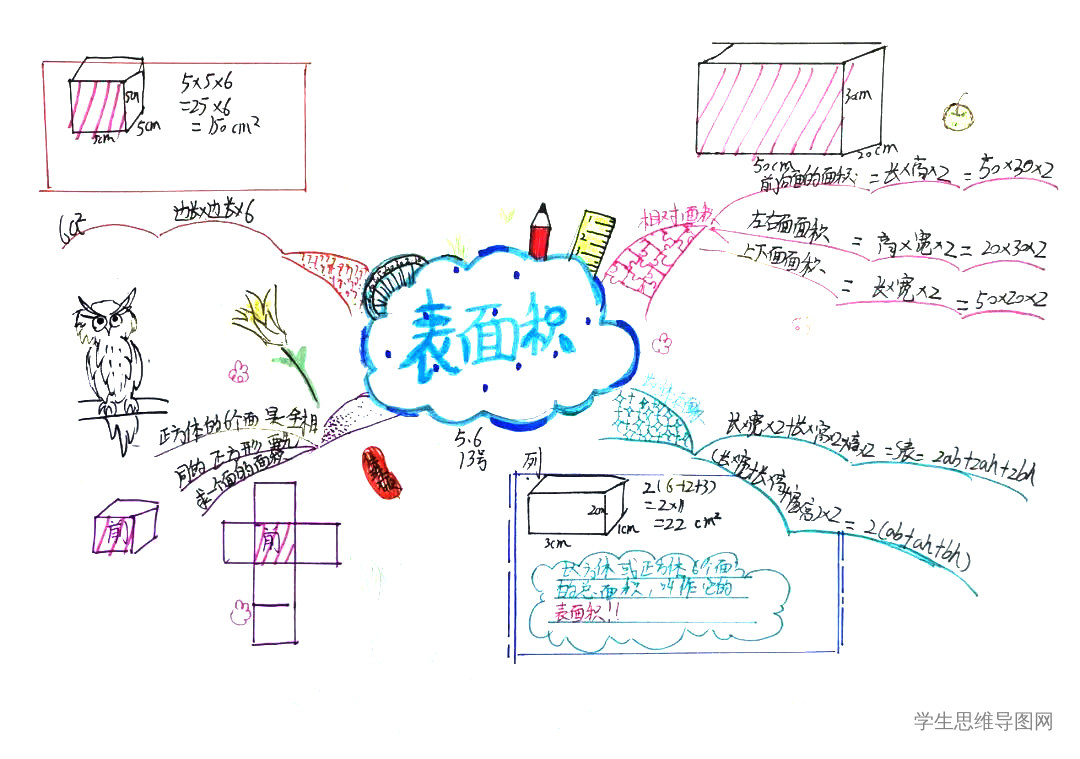 5×5×6
=25×6
=150cm²
5cm
5cm
5cm
边长×边长×6
6a²
表面积
30cm
20cm
50cm
相对面积
前后面的面积: =长×高×2 =50×30×2
左右面面积 =高×宽×2=20×30×2
上下面面积 =长×宽×2 =50×20×2
正方体的6个面是全相
同的正方形
求一个面的面积
前
前
5.6
13号
长×宽×2+长×高×2 =S表=2ab+2ah+2bh
=2(ab+ah+bh)
列
2cm
1cm
3cm
2(6+2+3)
=2×11
=22 cm²
长方体或正方体6个面
的总面积,叫作它的
表面积!!
学生思维导图网